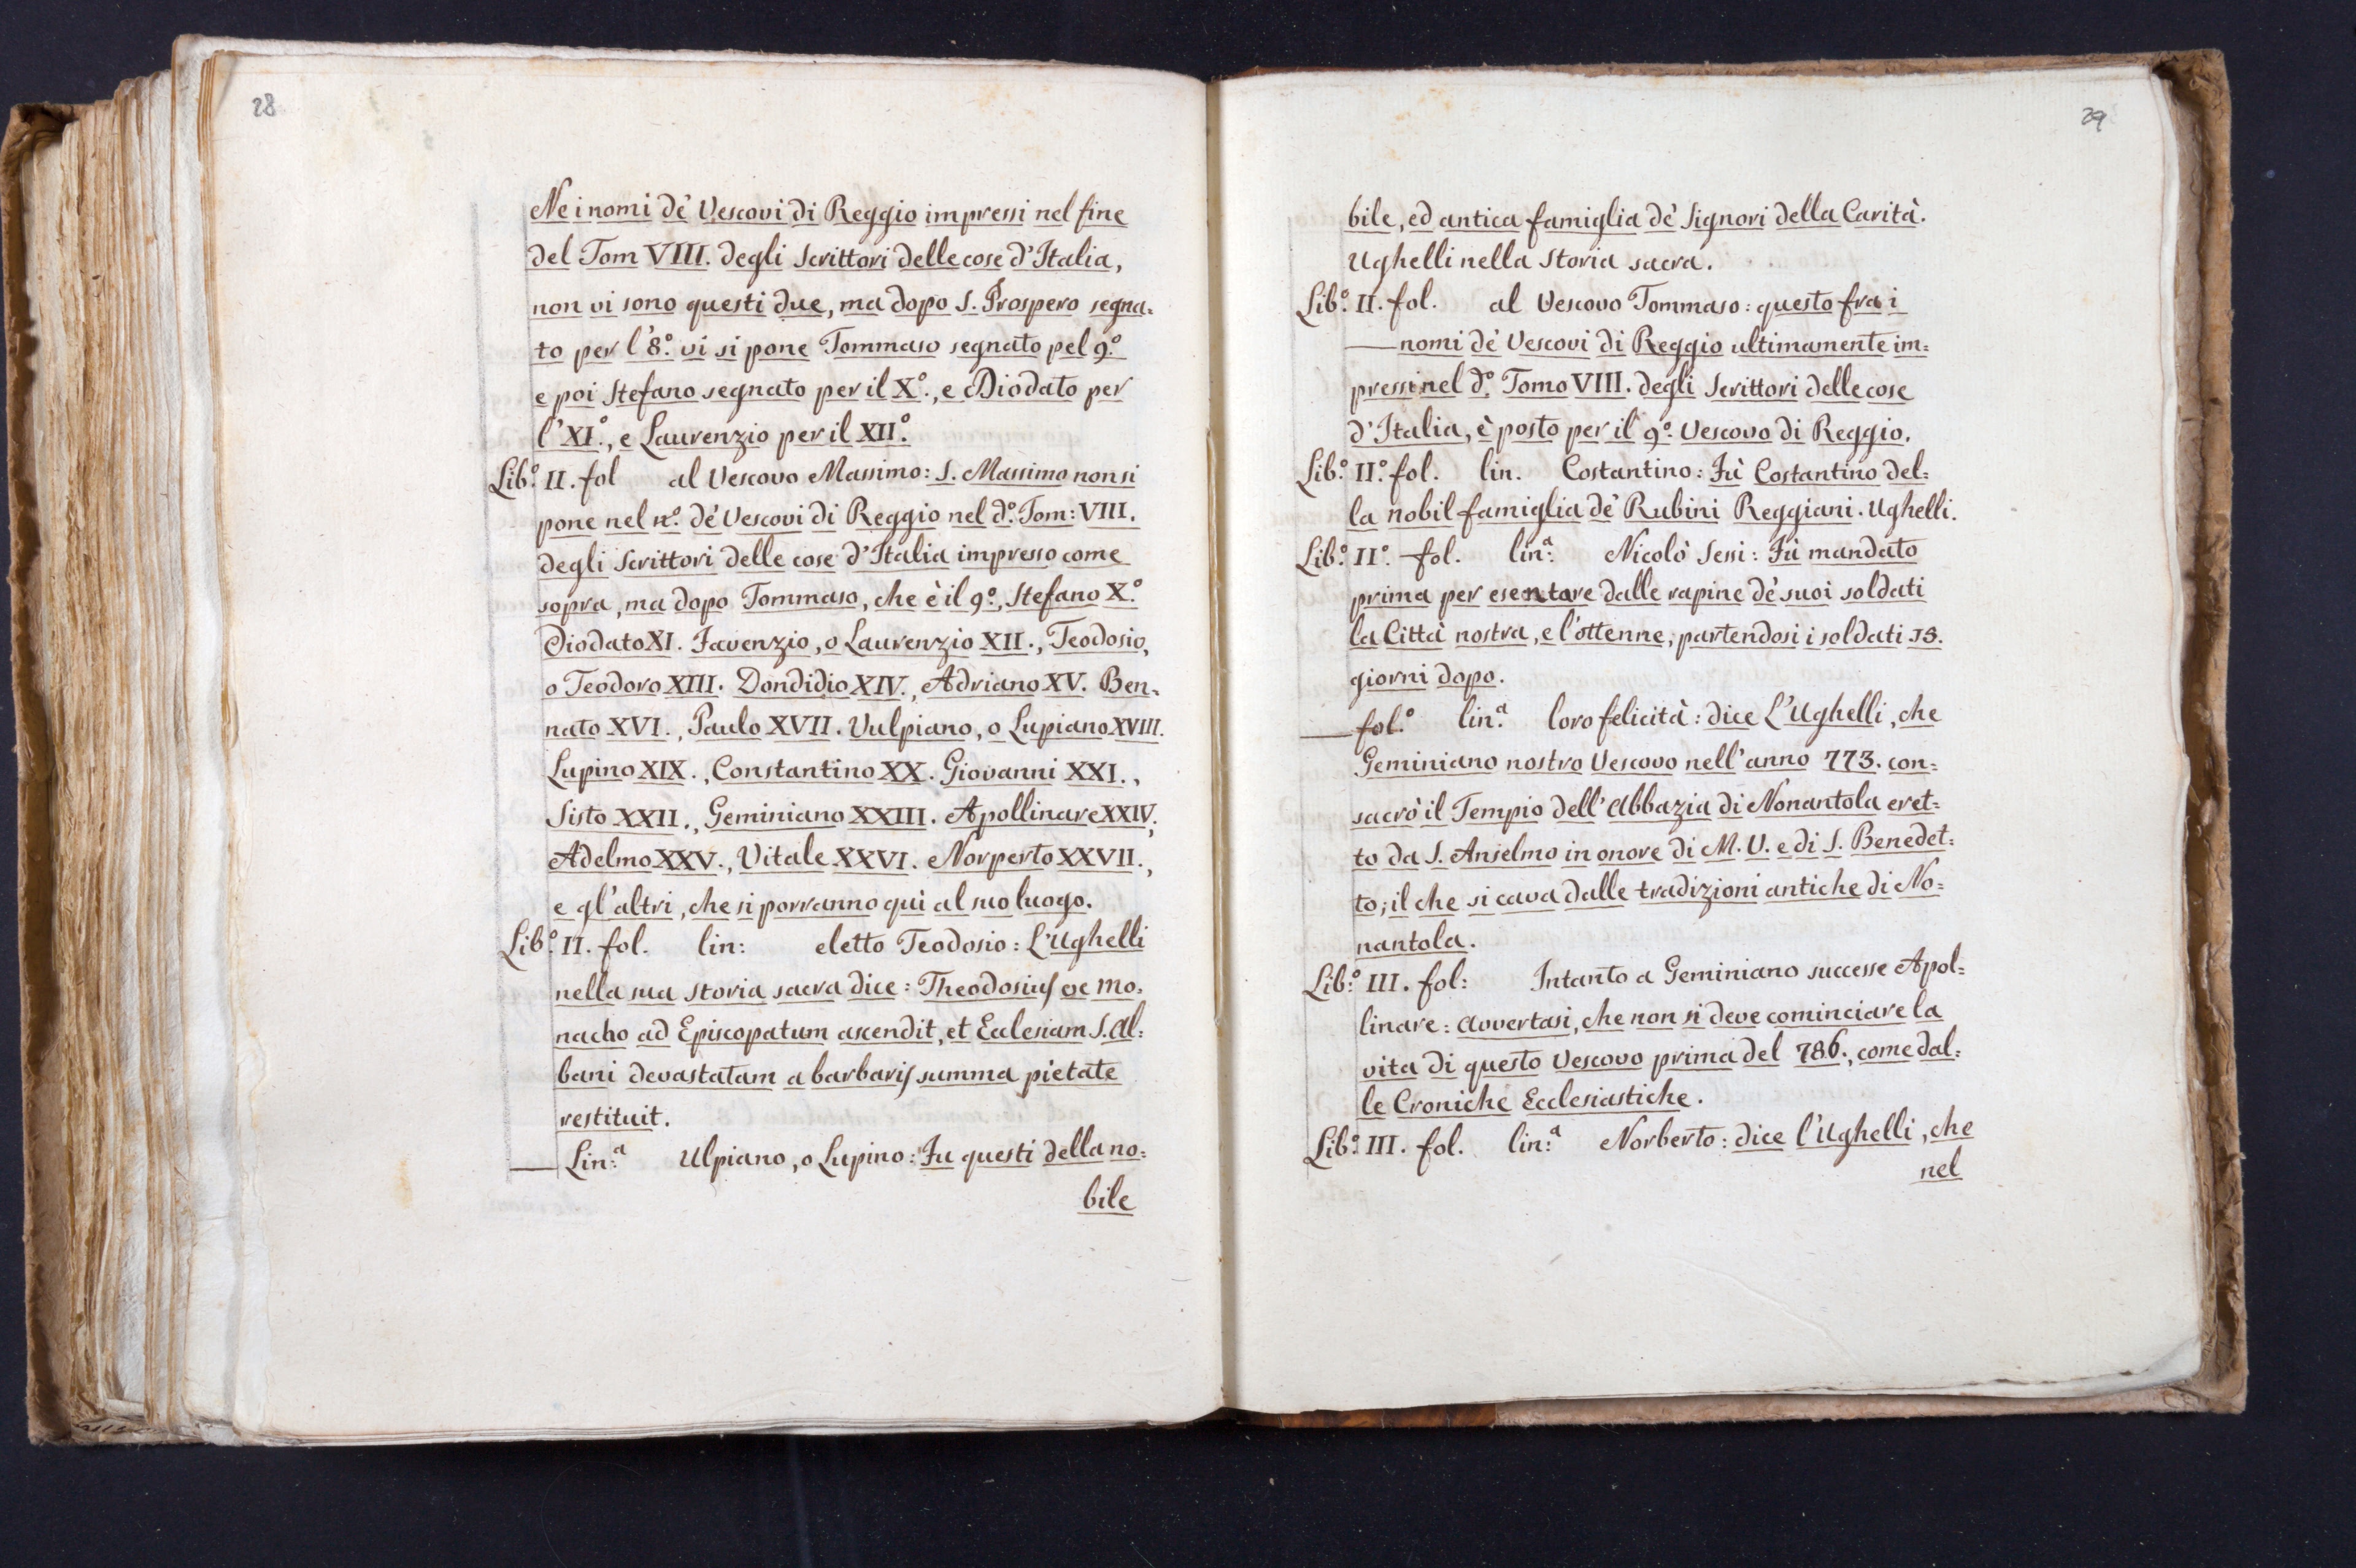 28
Ne i nomi de' Vescovi di Reggio impressi nel fine
del Tom VIII. degli Scrittori delle cose d'Italia,
non vi sono questi due, ma dopo S. Prospero segna=
to per l'8.º vi si pone Tommaso segnato pel 9.º
e poi Stefano segnato per il X.º, e Diodato per
l'XI.º, e Laurenzio per il XII.º
Lib.º II. fol al Vescovo Massimo: S. Massimo non si
pone nel n.º de' Vescovi di Reggio nel d.º Tom: VIII.
degli Scrittori delle cose d'Italia impresso come
sopra, ma dopo Tommaso, che è il 9.º, Stefano X.º
Diodato XI. Favenzio, o Laurenzio XII., Teodosio,
o Teodoro XIII. Dondidio XIV., Adriano XV. Ben=
nato XVI., Paulo XVII. Vulpiano, o Lupiano XVIII.
Lupino XIX., Constantino XX. Giovanni XXI.,
Sisto XXII., Geminiano XXIII. Apollinare XXIV.,
Adelmo XXV., Vitale XXVI. Norperto XXVII.,
e gl'altri, che si porranno quì al suo luogo.
Lib.º II. fol. lin: eletto Teodosio: L'Ughelli
nella sua storia sacra dice: Theodosius ex mo=
nacho ad Episcopatum ascendit, et Ecclesiam S. Al=
bani devastatam a barbaris summa pietate
restituit.
— Lin.ª Ulpiano, o Lupino: Fu questi della no=
bile
29
bile, ed antica famiglia de' Signori della Carità.
Ughelli nella Storia sacra.
Lib.º II. fol. al Vescovo Tommaso: questo fra i
— nomi de' Vescovi di Reggio ultimamente im=
pressi nel d.º Tomo VIII. degli Scrittori delle cose
d'Italia, è posto per il 9.º Vescovo di Reggio.
Lib.º II.º fol. lin. Costantino: Fù Costantino del=
la nobil famiglia de' Rubini Reggiani. Ughelli.
Lib.º II.º fol. lin.ª Nicolò Sessi: Fù mandato
prima per esentare dalle rapine de' suoi soldati
la Città nostra, e l'ottenne, partendosi i soldati 15.
giorni dopo.
— fol.º lin.ª loro felicità: dice L'Ughelli, che
Geminiano nostro Vescovo nell'anno 773. con=
sacrò il Tempio dell'Abbazia di Nonantola eret=
to da S. Anselmo in onore di M. V. e di S. Benedet=
to; il che si cava dalle tradizioni antiche di No=
nantola.
Lib.º III. fol: Intanto a Geminiano successe Apol=
linare: Avvertasi, che non si deve cominciare la
vita di questo Vescovo prima del 786., come dal=
le Croniche Ecclesiastiche.
Lib.º III. fol. lin.ª Norberto: dice l'Ughelli, che
nel